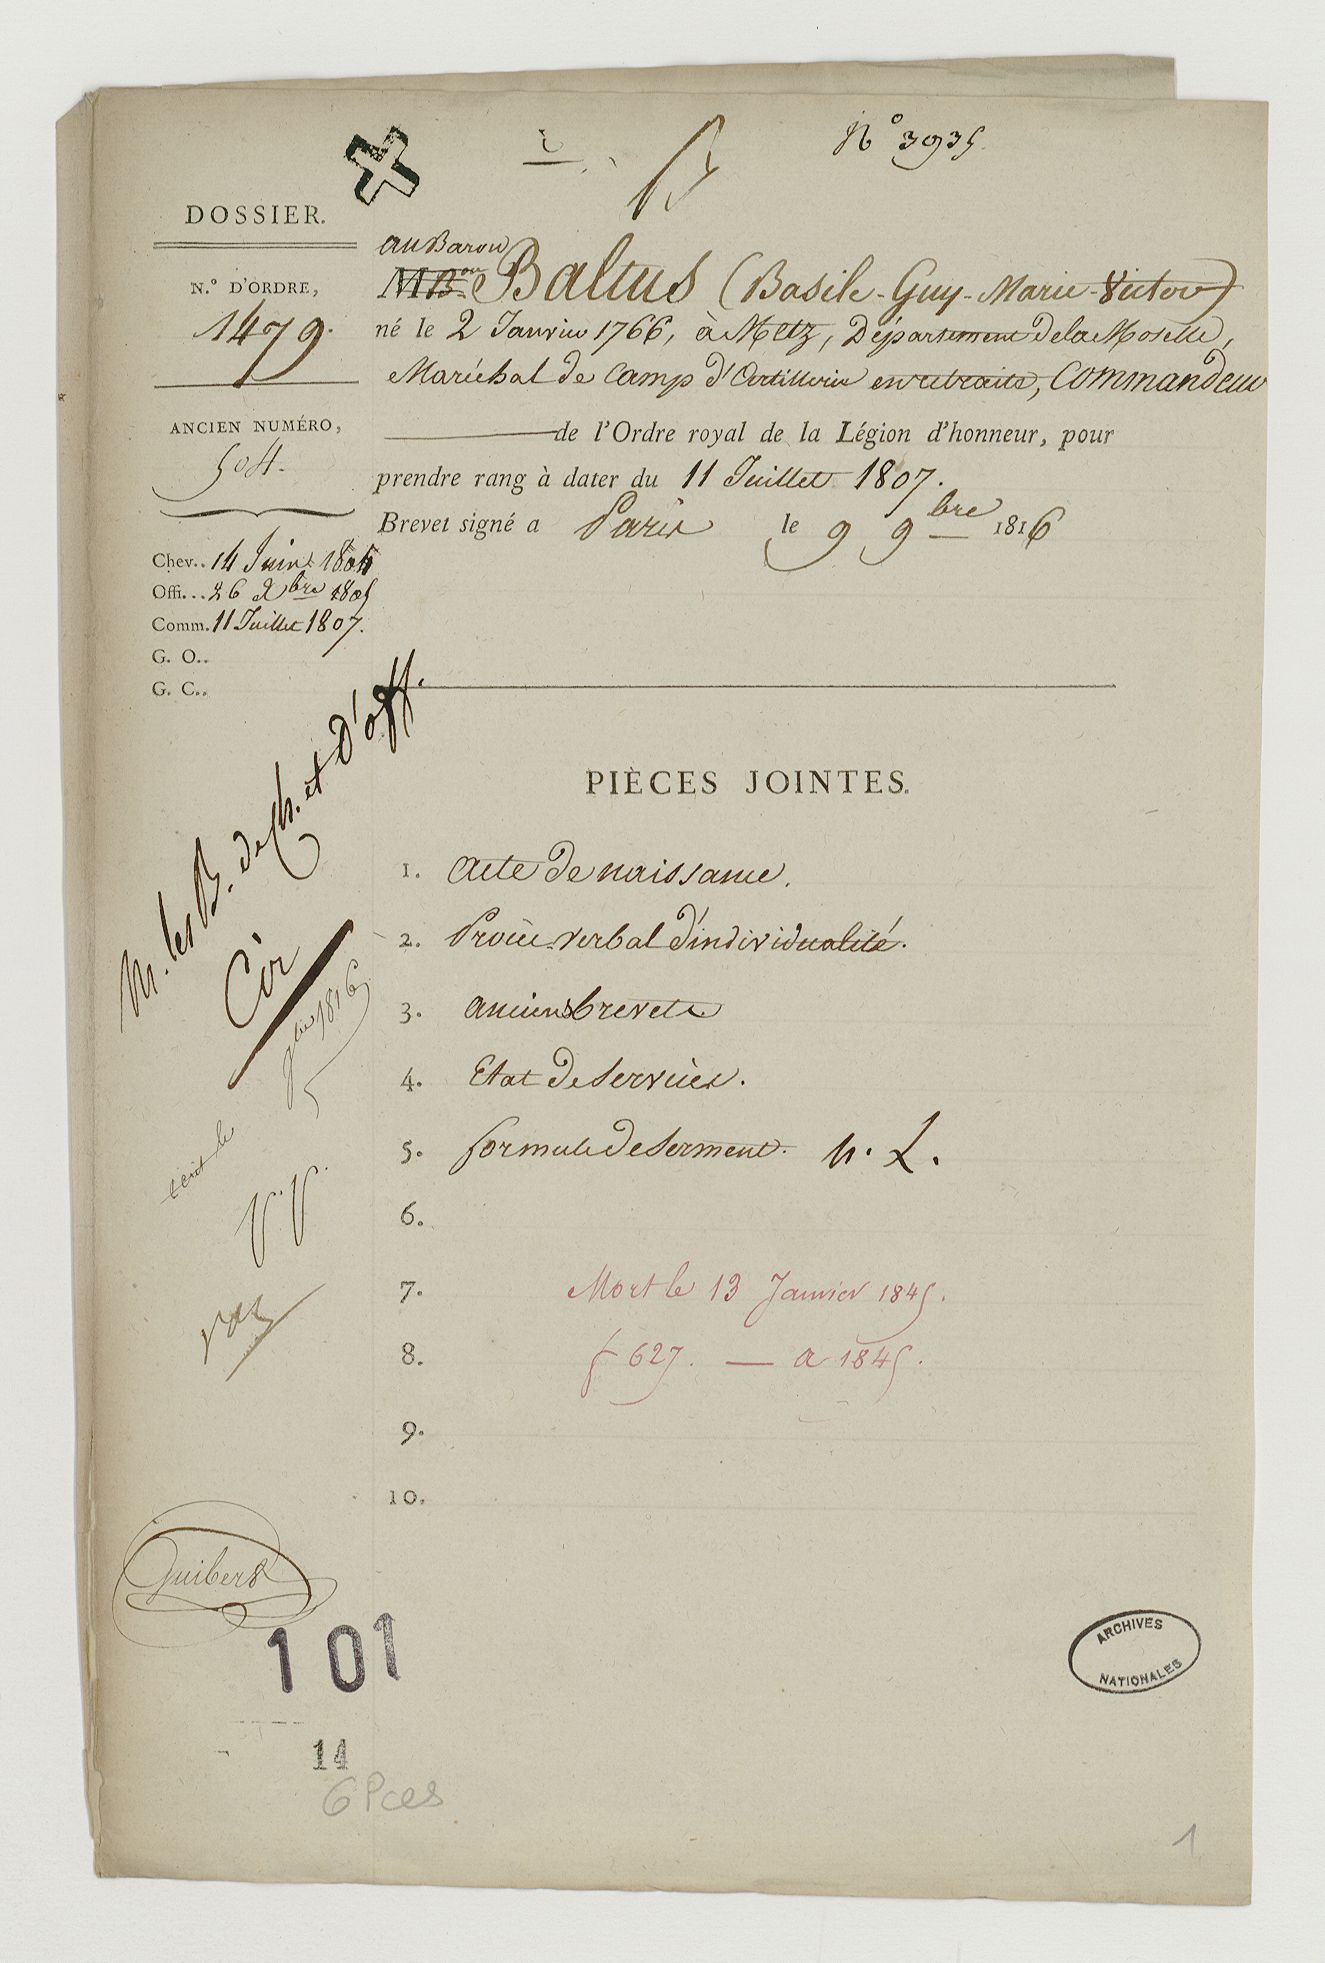 B
N° 3935
DOSSIER.
N.° D'ORDRE,
1479.
ANCIEN NUMÉRO,
504.
au Baron
M Bon Baltus (Basile-Guy-Marie-Victor)
né le 2 Janvier 1766, à Metz, Département de la Moselle,
Maréchal de Camp d'Artillerie en retraite, Commandeur
de l'Ordre royal de la Légion d'honneur, pour
prendre rang à dater du 11 Juillet 1807.
Brevet signé a Paris le 9 9bre 1816
Chev.. 14 Juin 1804
Offi... 26 Xbre 1805
Comm. 11 Juillet 1807.
G. O..
G. C..
M. les B. de Ch. et d'off.
Cir
9bre 1816
écrit le
V. V.
PIÈCES JOINTES.
1. Acte de naissance.
2. Procès-verbal d'individualité.
3. anciens brevets
4. Etat de Services.
5. formule de Serment. n. L.
6.
7. Mort le 13 Janvier 1845.
8. f 627. — a 1845.
9.
10.
Guibert
101
14
6 Pces
ARCHIVES
NATIONALES
1